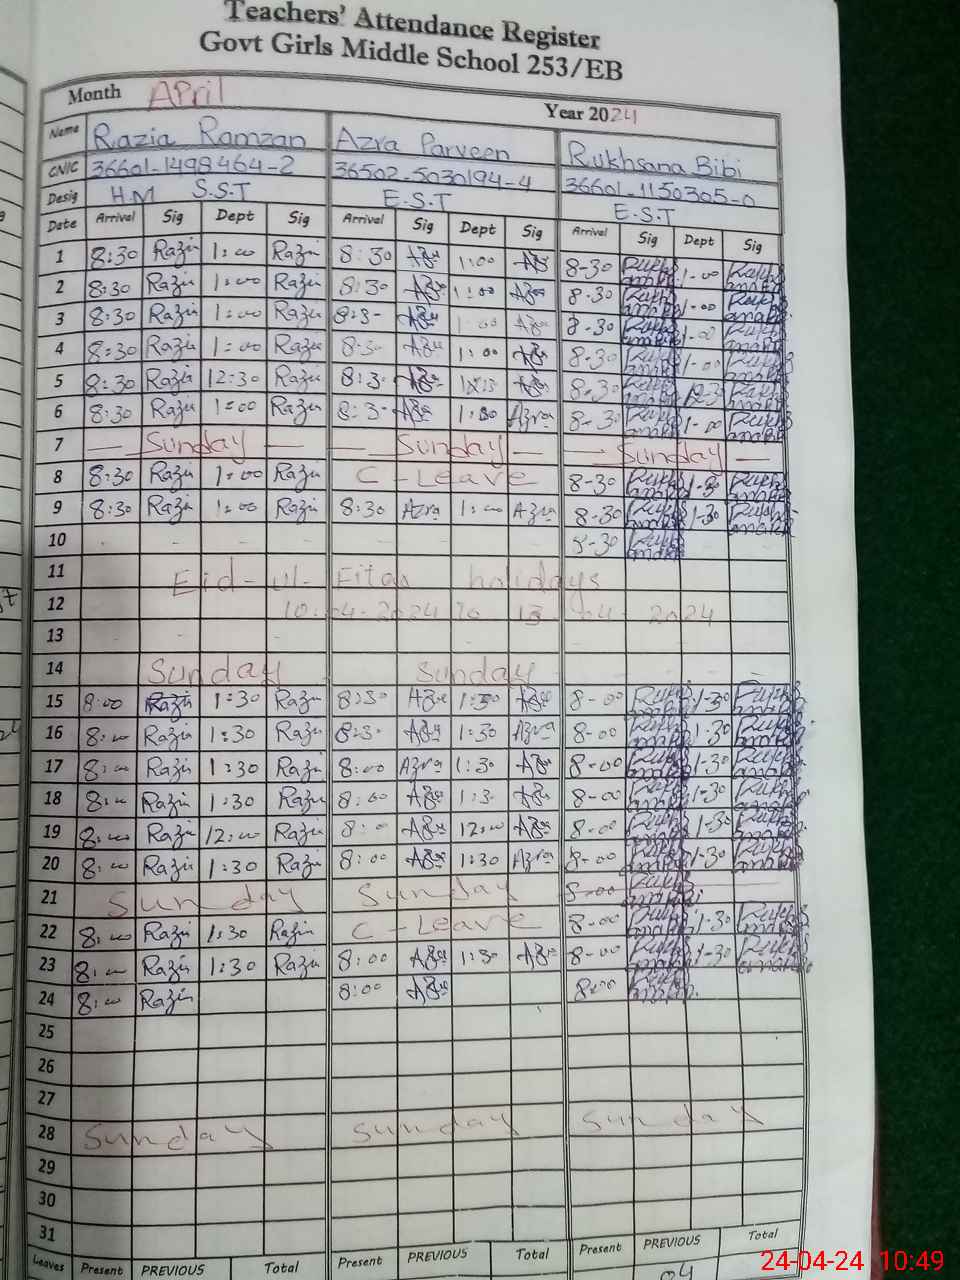 Teachers' Attendance Register
Govt Girls Middle School 253/EB
Month April Year 2024
Name Razia Ramzan Azra Parveen Rukhsana Bibi
CNIC 36601-1498464-2 36502-5030194-4 36601-1150305-0
Desig H.M S.S.T E.S.T E.S.T
Date Arrival Sig Dept Sig Arrival Sig Dept Sig Arrival Sig Dept Sig
1 8:30 Razia 1:00 Razia 8:30 1:00 8-30 1-00
2 8:30 Razia 1:00 Razia 8:30 1:00 8-30 1-00
3 8:30 Razia 1:00 Razia 8:3- 1:00 8-30 1-00
4 8:30 Razia 1:00 Razia 8:30 1:00 8-30 1-00
5 8:30 Razia 12:30 Razia 8:3- 8-30
6 8:30 Razia 1:00 Razia 8:3- 1:00 Azra 8-30 1-00
7 — Sunday — — Sunday — — Sunday —
8 8:30 Razia 1:00 Razia C-Leave 8-30 1-30
9 8:30 Razia 1:00 Razia 8:30 Azra 1:00 Azra 8-30 1-30
10 8-30
11 Eid-ul-Fitar holidays
12 10-04-2024 to 13-04-2024
13
14 Sunday Sunday
15 8:00 Razia 1:30 Razia 8:30 1:30 8-00 1-30
16 8:00 Razia 1:30 Razia 8:3- 1:30 Azra 8-00 1-30
17 8:00 Razia 1:30 Razia 8:00 Azra 1:30 8-00 1-30
18 8:00 Razia 1:30 Razia 8:00 1:3- 8-00 1-30
19 8:00 Razia 12:00 Razia 8:00 12:00 8-00 1-30
20 8:00 Razia 1:30 Razia 8:00 1:30 Azra 8-00 1-30
21 Sunday Sunday 8-00
22 8:00 Razia 1:30 Razia C-Leave 8-00 1-30
23 8:00 Razia 1:30 Razia 8:00 1:30 8-00 1-30
24 8:00 Razia 8:00 8:00
25
26
27
28 Sunday Sunday Sunday
29
30
31
Leaves Present PREVIOUS Total Present PREVIOUS Total Present PREVIOUS Total
04
24-04-24 10:49